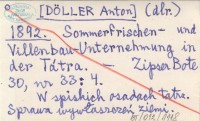 [DÖLLER Anton] (dr.)
1892. Sommerfrischen- und
Villenbau-Unternehmung in
der Tátra. — Zipser Bote
30, nr 33: 4.
W spiskich osadach tatrz.
Sprawa wywłaszczeń ziemi.